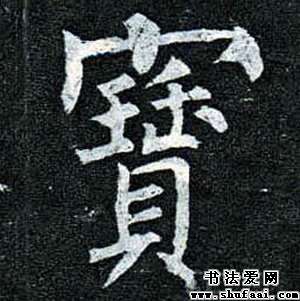 寶
书法爱网
www.shufaai.com